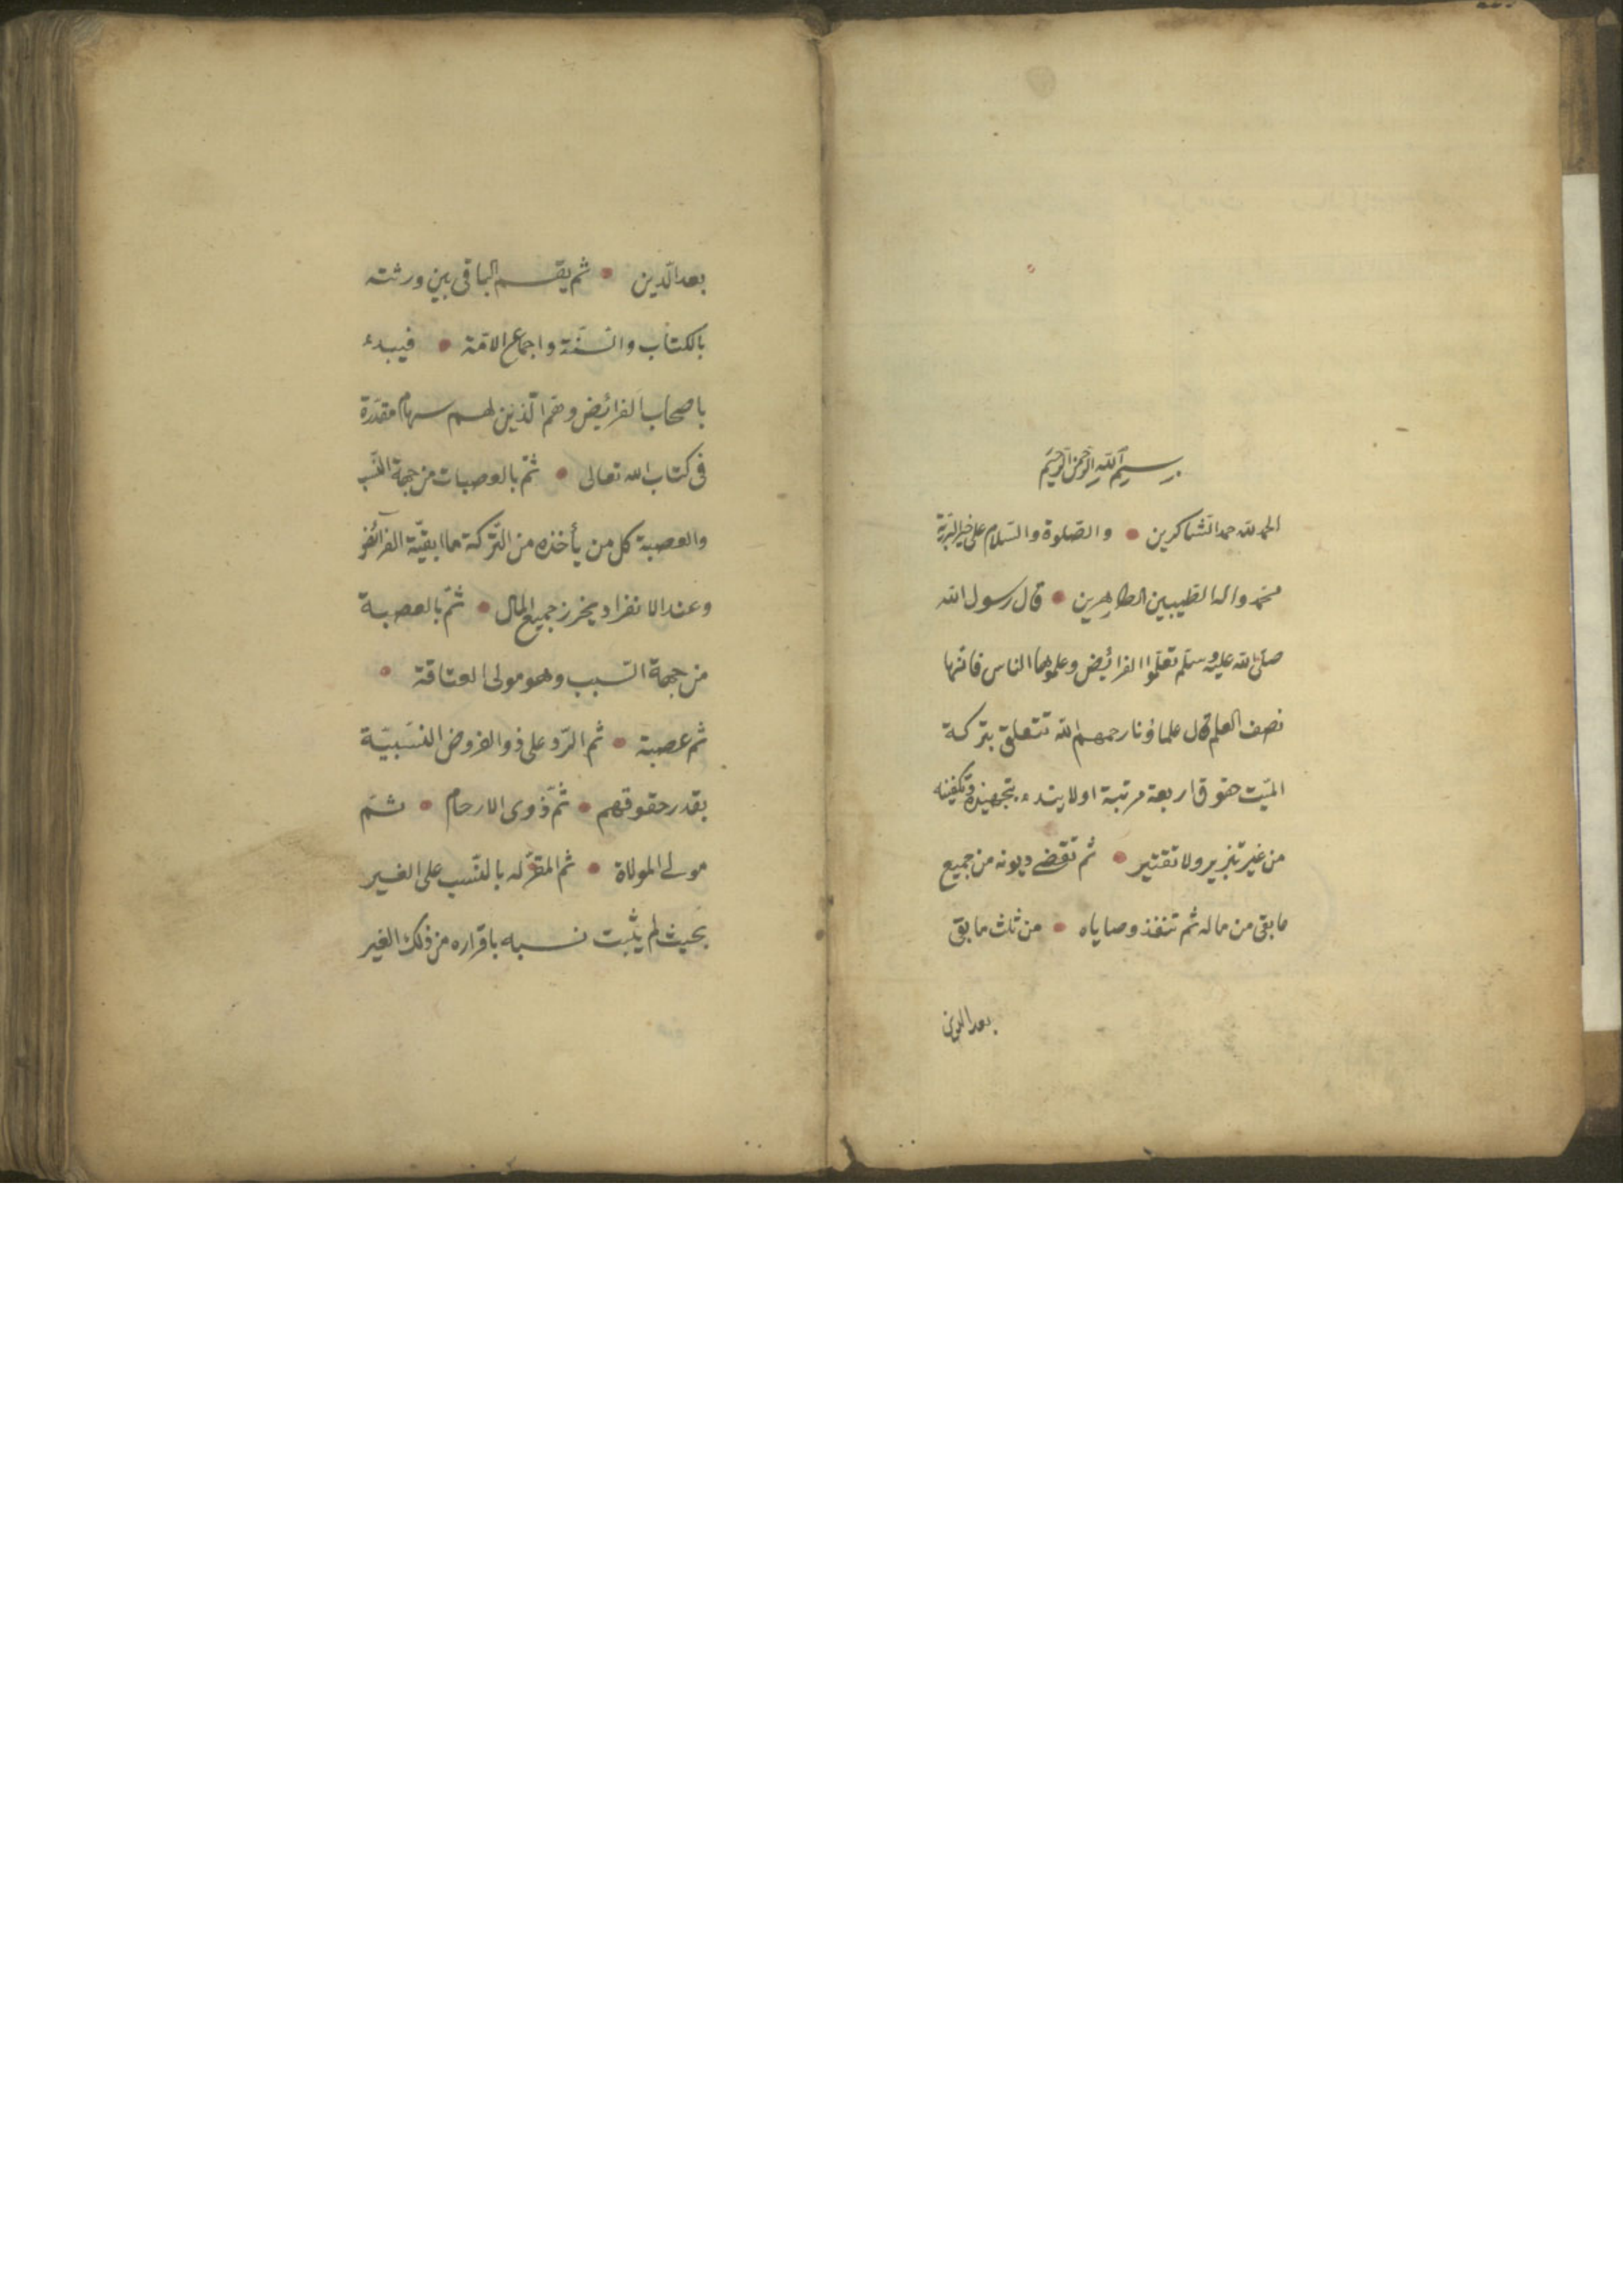 بسم الله الرحمن الرحيم
الحمد لله حمد الشاكرين • والصلوة والسلام على خير البرية
محمد واله الطيبين الطاهرين • قال رسول الله
صلى الله عليه وسلم تعلموا الفرائض وعلموها الناس فانها
نصف العلم قال علماؤنا رحمهم الله تتعلق بتركة
الميت حقوق اربعة مرتبة اولا يبتدء بتجهيزه وتكفينه
من غير تبزير ولا تقتير • ثم تقضى ديونه من جميع
ما بقى من ماله ثم تنفذ وصاياه • من ثلث ما بقى
بعد الدين
بعد الدّين • ثم يقسم الباقى بين ورثته
بالكتاب والسنّة واجماع الامّة • فيبدء
باصحاب الفرائض وهم الّذين لهم سهام مقدّرة
فى كتاب الله تعالى • ثمّ بالعصبات من جهة النسب
والعصبة كل من يأخذه من التّركة ما ابقيّة الفرآئض
وعند الانفراد يحرز جميع المال • ثمّ بالعصبة
من جهة السبب وهو مولى العتاقة •
ثم عصبة • ثم الرّد على ذوالفروض النسَبيّة
بقدر حقوقهم • ثمّ ذوى الارحام • ثمّ
مولى الموالاة • ثم المقرّ له بالنّسب على الغير
بحيث لم يثبت نسبه باقراره من ذلك الغير